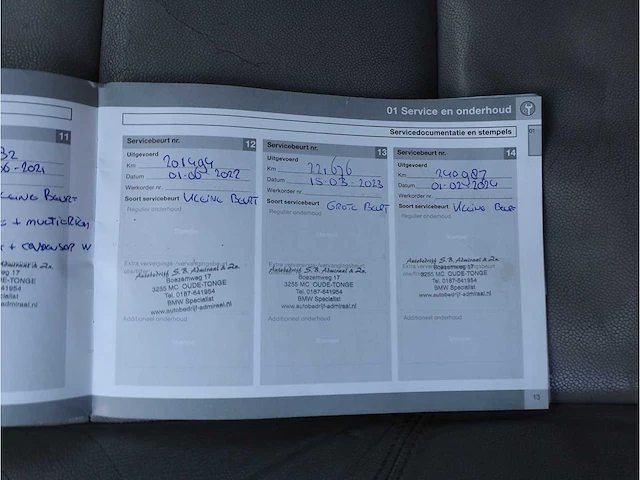 01 Service en onderhoud
01
Servicedocumentatie en stempels
11
32
06-2021
KLEINE BEURT
+ MULTIRIEM
+ CONDENSOR W
Autobedrijf S.B. Admiraal & Zn.
weg 17
DE-TONGE
641954
cialist
admiraal.nl
Servicebeurt nr. 12
Uitgevoerd
Km 201494
Datum 01-06-2022
Werkorder nr.
Soort servicebeurt KLEINE BEURT
Regulier onderhoud
Autobedrijf S.B. Admiraal & Zn.
Boezemweg 17
3255 MC OUDE-TONGE
Tel. 0187-641954
BMW Specialist
www.autobedrijf-admiraal.nl
Additioneel onderhoud
Servicebeurt nr. 13
Uitgevoerd
Km 221676
Datum 15-03-2023
Werkorder nr.
Soort servicebeurt GROTE BEURT
Regulier onderhoud
Autobedrijf S.B. Admiraal & Zn.
Boezemweg 17
3255 MC OUDE-TONGE
Tel. 0187-641954
BMW Specialist
www.autobedrijf-admiraal.nl
Additioneel onderhoud
Servicebeurt nr. 14
Uitgevoerd
Km 240987
Datum 01-02-2024
Werkorder nr.
Soort servicebeurt KLEINE BEURT
Regulier onderhoud
Autobedrijf S.B. Admiraal & Zn.
Boezemweg 17
3255 MC OUDE-TONGE
Tel. 0187-641954
BMW Specialist
www.autobedrijf-admiraal.nl
Additioneel onderhoud
13